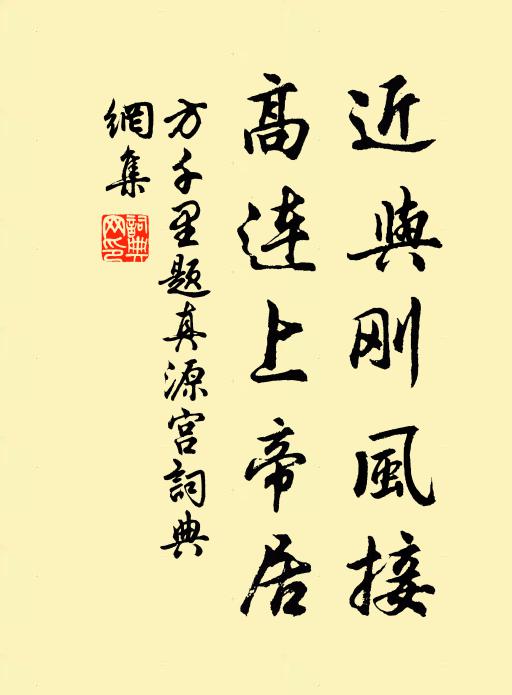 近與刚風接
高連上帝居
方千里题真源宫詞典
網集
詞典
网印